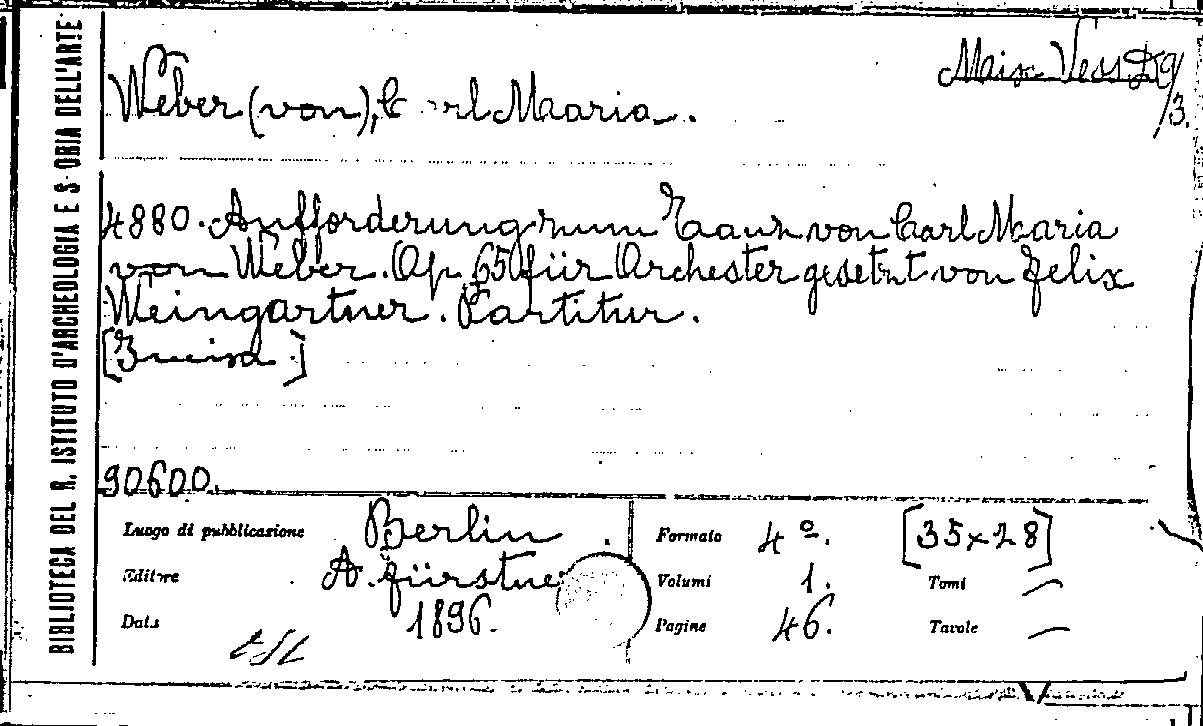 BIBLIOTECA DEL R. ISTITUTO D'ARCHEOLOGIA E S ORIA DELL'ARTE
Weber (von), C rl Maaria.
/3.
4880. Aufforderung zum Taanz von Carl Maaria
von Weber. Op. 65 für Orchester gesetzt von Felix
Weingartner. Partitur.
90600.
Luogo di pubblicazione Berlin. Formato 4º. [35x28]
Editore A. Fürstner Volumi 1. Tomi —
Data 1896. Pagine 46. Tavole —